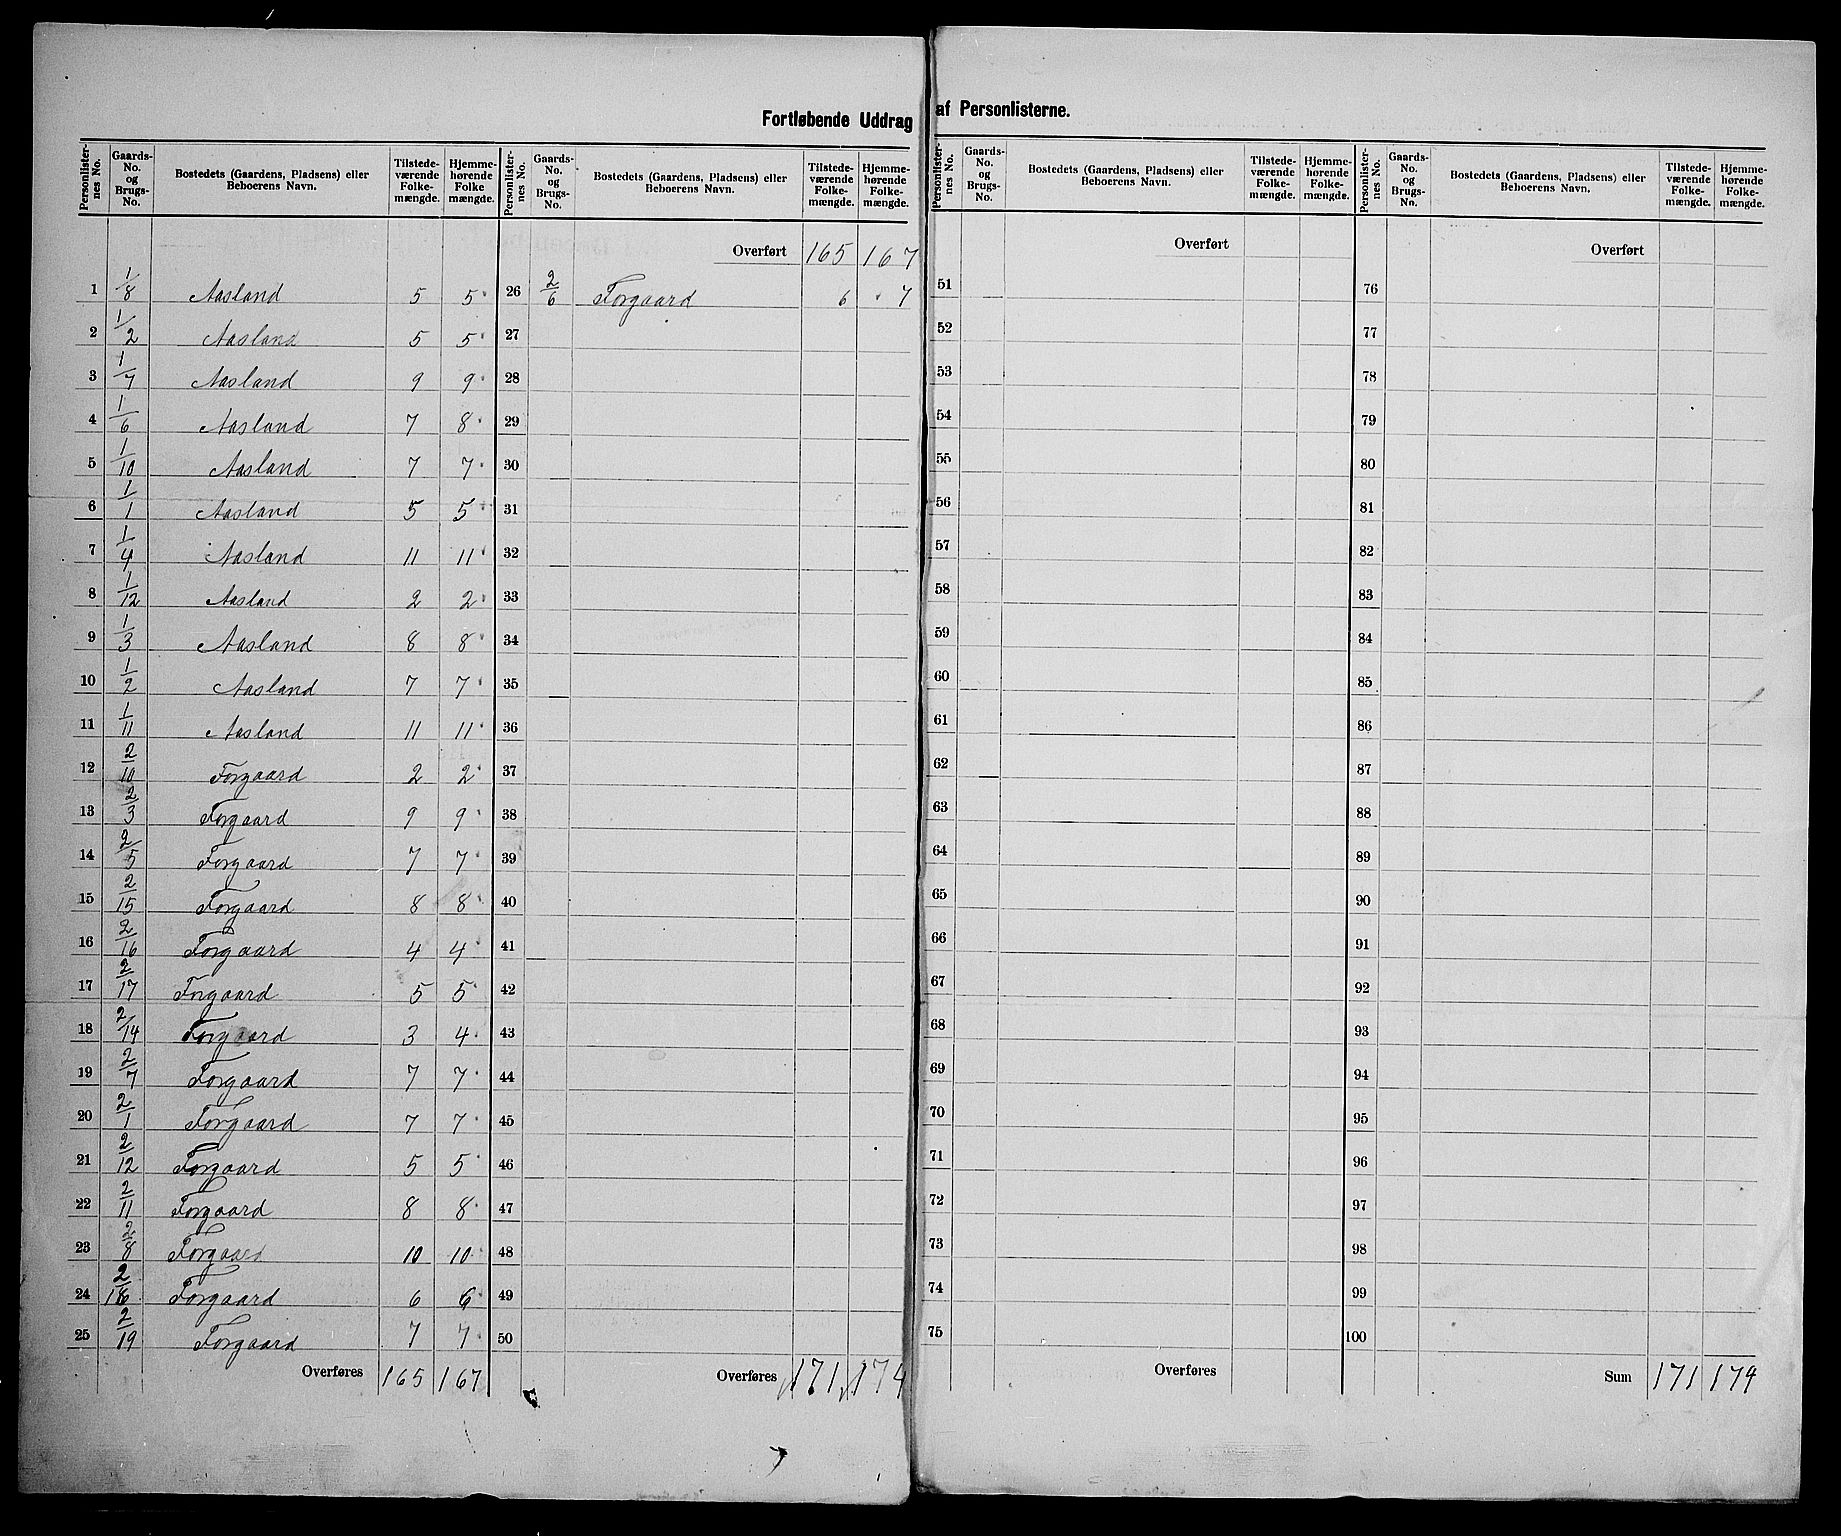 Fortløbende Uddrag af Personlisterne.
Personlister-nes No. | Gaards-No. og Brugs-No. | Bostedets (Gaardens, Pladsens) eller Beboerens Navn. | Tilstede-værende Folke-mængde. | Hjemme-hørende Folke mængde.
1 | 1/8 | Aasland | 5 | 5
2 | 1/2 | Aasland | 5 | 5
3 | 1/7 | Aasland | 9 | 9
4 | 1/6 | Aasland | 7 | 8
5 | 1/10 | Aasland | 7 | 7
6 | 1/1 | Aasland | 5 | 5
7 | 1/4 | Aasland | 11 | 11
8 | 1/12 | Aasland | 2 | 2
9 | 1/3 | Aasland | 8 | 8
10 | 1/2 | Aasland | 7 | 7
11 | 1/11 | Aasland | 11 | 11
12 | 2/10 | Forgaard | 2 | 2
13 | 2/3 | Forgaard | 9 | 9
14 | 2/5 | Forgaard | 7 | 7
15 | 2/15 | Forgaard | 8 | 8
16 | 2/16 | Forgaard | 4 | 4
17 | 2/17 | Forgaard | 5 | 5
18 | 2/14 | Forgaard | 3 | 4
19 | 2/7 | Forgaard | 7 | 7
20 | 2/1 | Forgaard | 7 | 7
21 | 2/12 | Forgaard | 5 | 5
22 | 2/11 | Forgaard | 8 | 8
23 | 2/8 | Forgaard | 10 | 10
24 | 2/ | Forgaard | 6 | 6
25 | 2/19 | Forgaard | 7 | 7
Overføres 165 167
Personlister-nes No. | Gaards-No. og Brugs-No. | Bostedets (Gaardens, Pladsens) eller Beboerens Navn. | Tilstede-værende Folke-mængde. | Hjemme-hørende Folke-mængde.
Overført 165 167
26 | 2/6 | Forgaard | 6 | 7
27
28
29
30
31
32
33
34
35
36
37
38
39
40
41
42
43
44
45
46
47
48
49
50
Overføres 171 174
Personlister-nes No. | Gaards-No. og Brugs-No. | Bostedets (Gaardens, Pladsens) eller Beboerens Navn. | Tilstede-værende Folke-mængde. | Hjemme-hørende Folke-mængde.
Overført
51
52
53
54
55
56
57
58
59
60
61
62
63
64
65
66
67
68
69
70
71
72
73
74
75
Overføres
Personlister-nes No. | Gaards-No. og Brugs-No. | Bostedets (Gaardens, Pladsens) eller Beboerens Navn. | Tilstede-værende Folke-mængde. | Hjemme-hørende Folke-mængde.
Overført
76
77
78
79
80
81
82
83
84
85
86
87
88
89
90
91
92
93
94
95
96
97
98
99
100
Sum 171 174